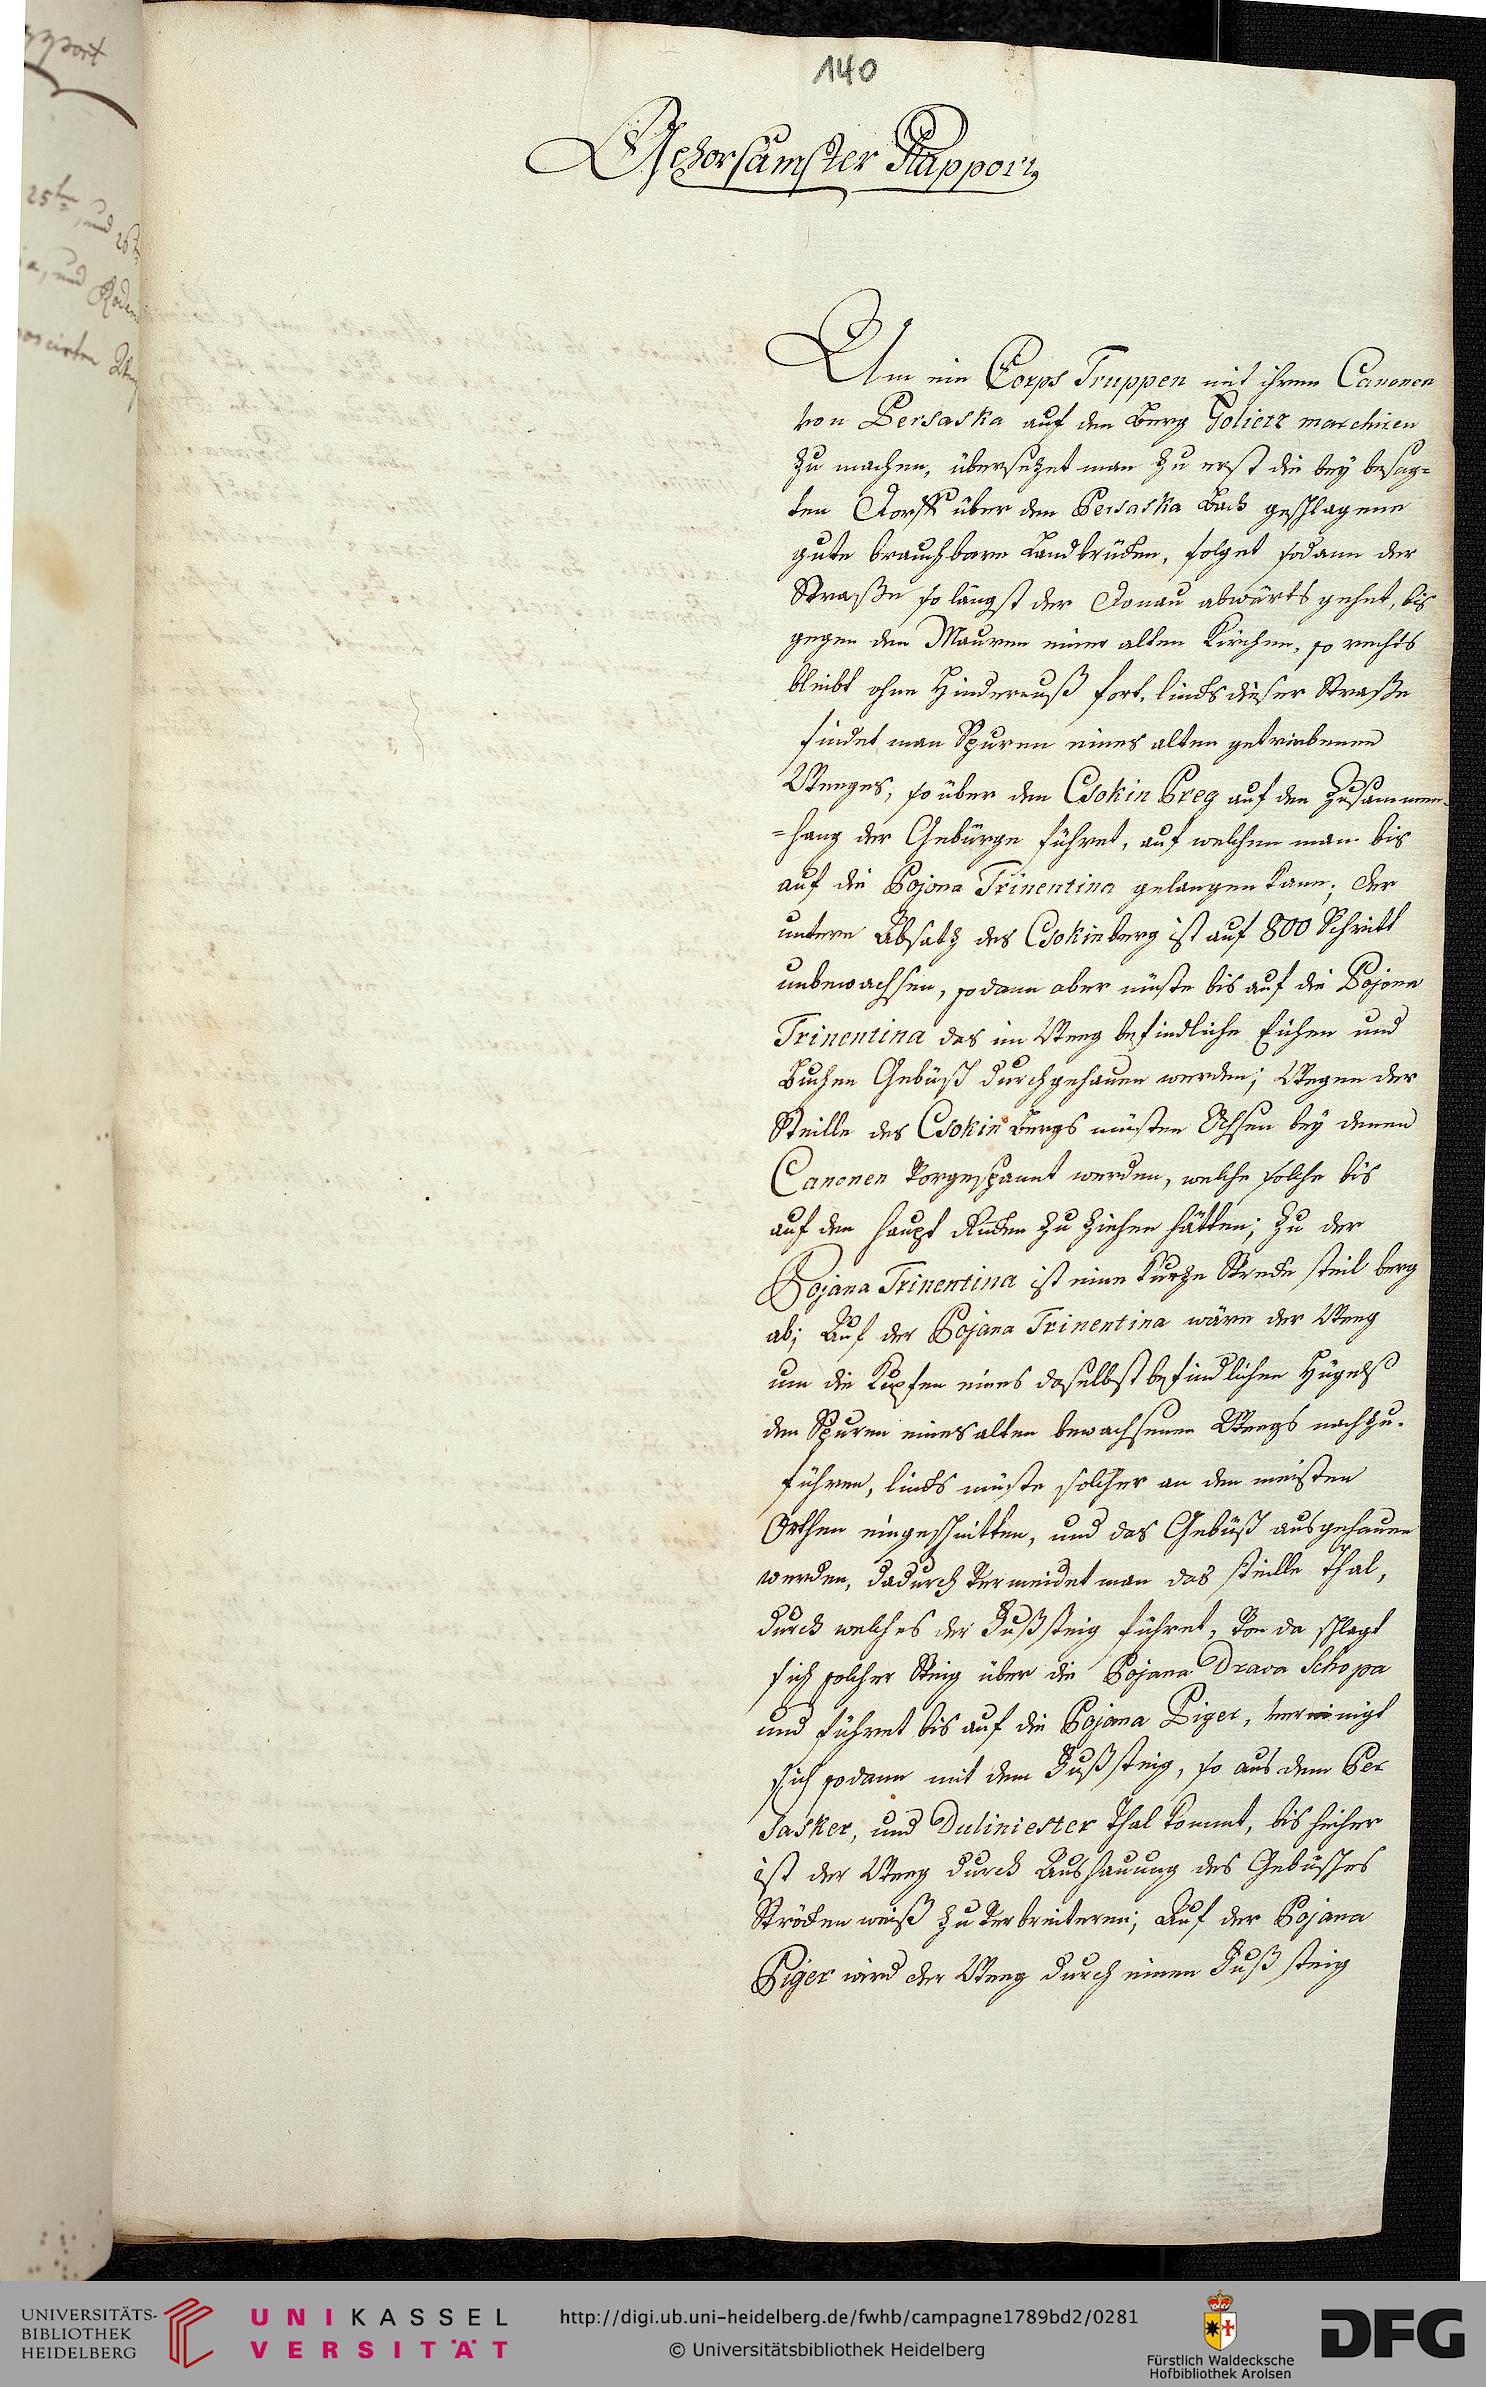 140
Gehorsamster Rapport,
Um ein Corps Truppen mit ihren Canonen
von Persaska auf den Berg Golietz marchiren
zu machen, übersetzet man zu erst die bey besag=
ten Dorff über den Persaska Bach geschlagene
gute brauchbare Landbrücken, folget sodann der
Straße so längst der Donau abwärts gehet, bis
gegen den Mauren einer alten Kirchen, so rechts
bleibt ohne Hindernuß fort, lincks dieser Straße
findet man Spuren eines alten getriebenen
Weeges, so über den Csokin Breg auf den Zusammen=
=hang der Gebürge führet, auf welchen man bis
auf die Pojana Trinentina gelangen kann; der
untere Absatz des Csokinberg ist auf 800 Schritt
unbewachsen, sodann aber müste bis auf die Pojana
Trinentina das im Weeg befindliche Eichen und
Buchen Gebüsch durchgehauen werden; Wegen der
Steille des Csokin Bergs müsten Ochsen bey denen
Canonen vorgespannt werden, welche solche bis
auf den haupt Rucken zu ziehen hätten; Zu der
Pojana Trinentina ist eine kurze Strecke steil berg
ab; Auf der Pojana Trinentina wäre der Weeg
um die Kupfen eines daselbst befindlichen Hügels
den Spuren eines alten bewachsenen Weegs nachzu-
führen, lincks müste solcher an den meisten
Orthen eingeschnitten, und das Gebüsch ausgehauen
werden, dadurch vermeidet man das steille Thal,
durch welches der Fußsteig führet, von da schlagt
sich solcher Steig über die Pojana Drava Schopa
und führet bis auf die Pojana Piger, vereinigt
sich sodann mit dem Fußsteig, so aus dem Per
sasker, und Duliniester Thal kommt, bis hieher
ist der Weeg durch Aushauung des Gebüsches
Ströcken weiß zu verbreiteren; Auf der Pojana
Piger wird der Weeg durch einen Fuß steig
UNIVERSITÄTS-
BIBLIOTHEK
HEIDELBERG
UNIKASSEL
VERSITÄT
http://digi.ub.uni-heidelberg.de/fwhb/campagne1789bd2/0281
© Universitätsbibliothek Heidelberg
Fürstlich Waldecksche
Hofbibliothek Arolsen
DFG